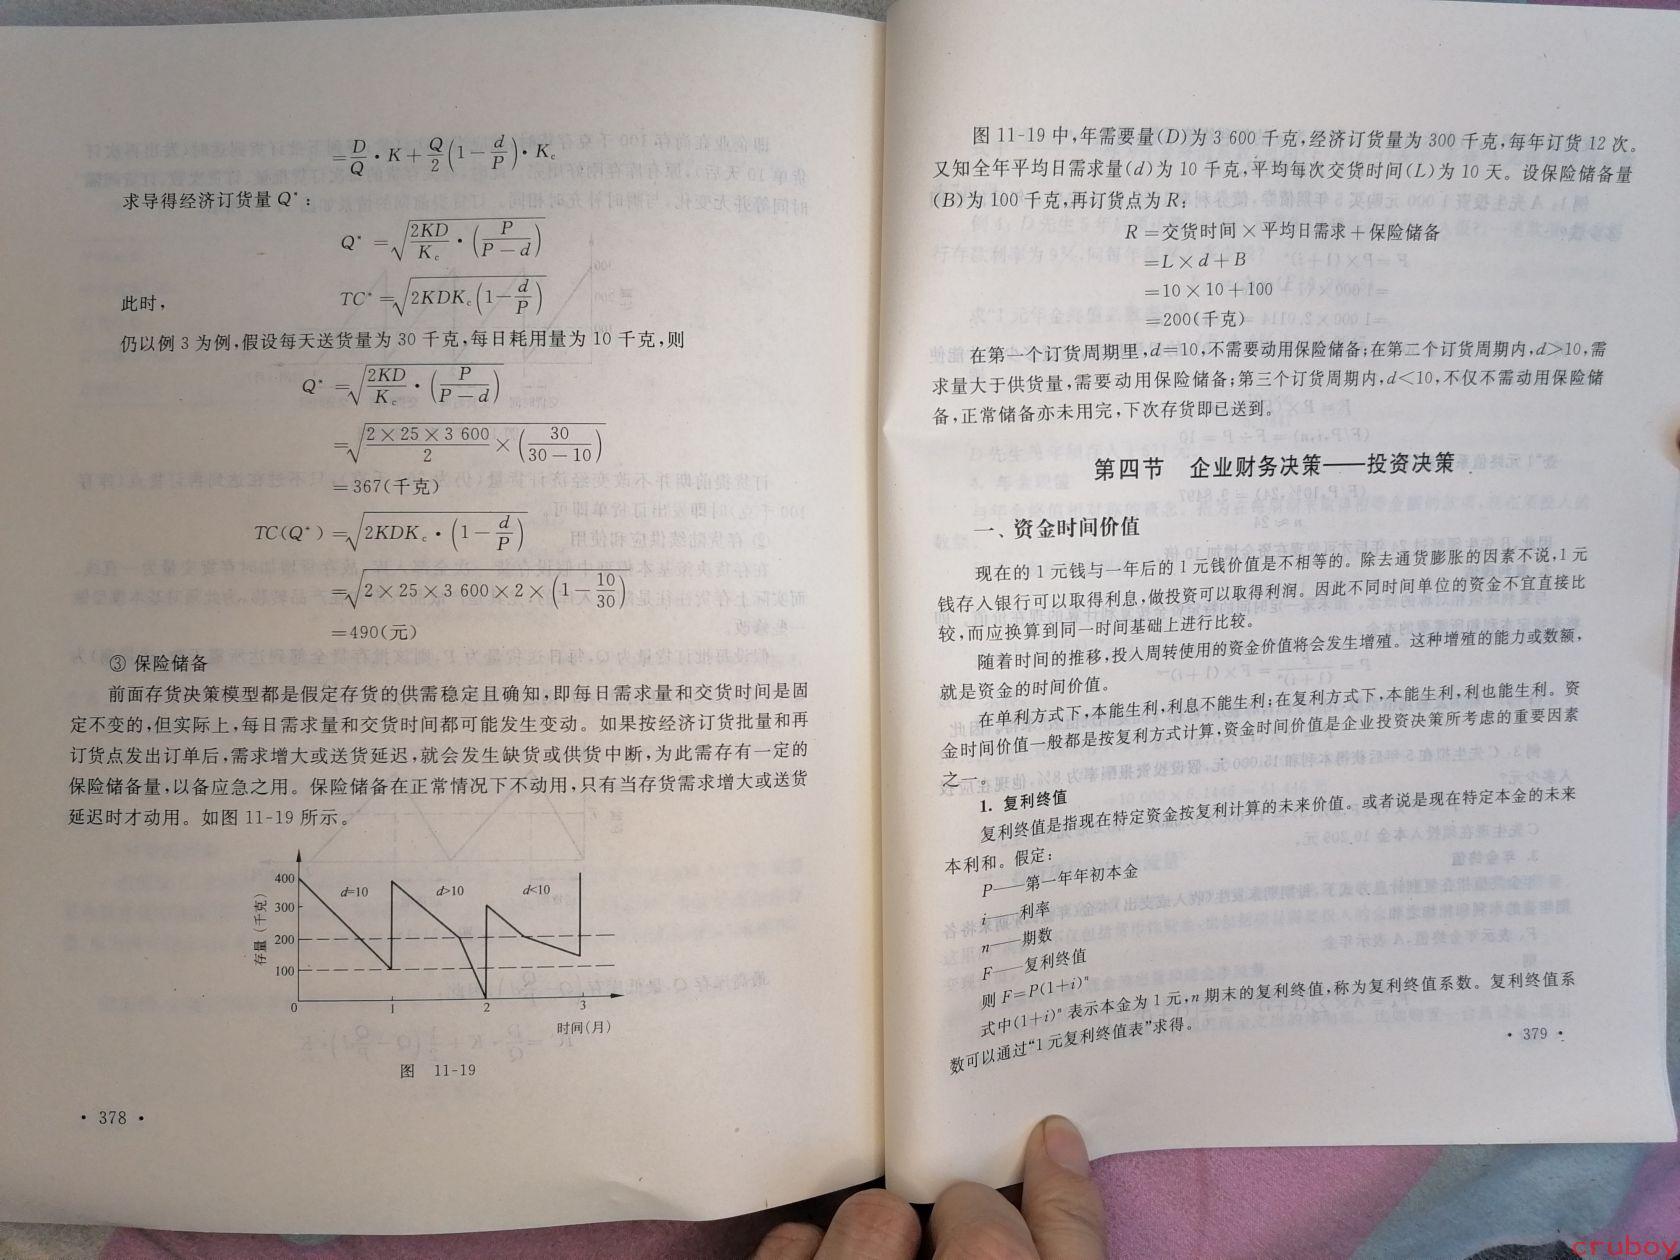 =D/Q·K+Q/2(1-d/P)·Kc
求导得经济订货量 Q*:
Q* =√(2KD/Kc·(P/(P-d)))
此时, TC* =√(2KDKc(1-d/P))
仍以例 3 为例,假设每天送货量为 30 千克,每日耗用量为 10 千克,则
Q* =√(2KD/Kc·(P/(P-d)))
=√(2×25×3 600/2×(30/(30-10)))
=367(千克)
TC(Q*)=√(2KDKc·(1-d/P))
=√(2×25×3 600×2×(1-10/30))
=490(元)
③ 保险储备
前面存货决策模型都是假定存货的供需稳定且确知,即每日需求量和交货时间是固
定不变的,但实际上,每日需求量和交货时间都可能发生变动。如果按经济订货批量和再
订货点发出订单后,需求增大或送货延迟,就会发生缺货或供货中断,为此需存有一定的
保险储备量,以备应急之用。保险储备在正常情况下不动用,只有当存货需求增大或送货
延迟时才动用。如图 11-19 所示。
存量(千克)
400
300
200
100
0
d=10
d>10
d<10
1
2
3
时间(月)
图 11-19
· 378 ·
图 11-19 中,年需要量(D)为 3 600 千克,经济订货量为 300 千克,每年订货 12 次。
又知全年平均日需求量(d)为 10 千克,平均每次交货时间(L)为 10 天。设保险储备量
(B)为 100 千克,再订货点为 R:
R=交货时间×平均日需求+保险储备
=L×d+B
=10×10+100
=200(千克)
在第一个订货周期里,d=10,不需要动用保险储备;在第二个订货周期内,d>10,需
求量大于供货量,需要动用保险储备;第三个订货周期内,d<10,不仅不需动用保险储
备,正常储备亦未用完,下次存货即已送到。
第四节 企业财务决策——投资决策
一、资金时间价值
现在的 1 元钱与一年后的 1 元钱价值是不相等的。除去通货膨胀的因素不说,1 元
钱存入银行可以取得利息,做投资可以取得利润。因此不同时间单位的资金不宜直接比
较,而应换算到同一时间基础上进行比较。
随着时间的推移,投入周转使用的资金价值将会发生增殖。这种增殖的能力或数额,
就是资金的时间价值。
在单利方式下,本能生利,利息不能生利;在复利方式下,本能生利,利也能生利。资
金时间价值一般都是按复利方式计算,资金时间价值是企业投资决策所考虑的重要因素
之一。
1. 复利终值
复利终值是指现在特定资金按复利计算的未来价值。或者说是现在特定本金的未来
本利和。假定:
P——第一年年初本金
i——利率
n——期数
F——复利终值
则 F=P(1+i)ⁿ
式中(1+i)ⁿ 表示本金为 1 元,n 期末的复利终值,称为复利终值系数。复利终值系
数可以通过“1 元复利终值表”求得。
· 379 ·
cruboy